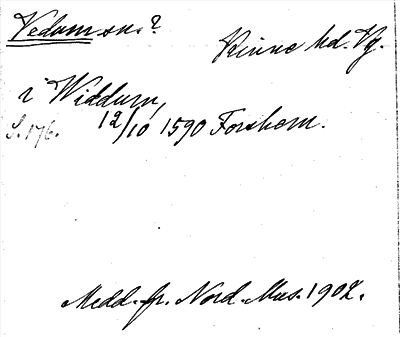 Vedum sn.?
Kinne hd. Vg.
i Widdum,
S. 176.
12/10 1590 Forshem.
Medd. fr. Nord. Mus. 1902.